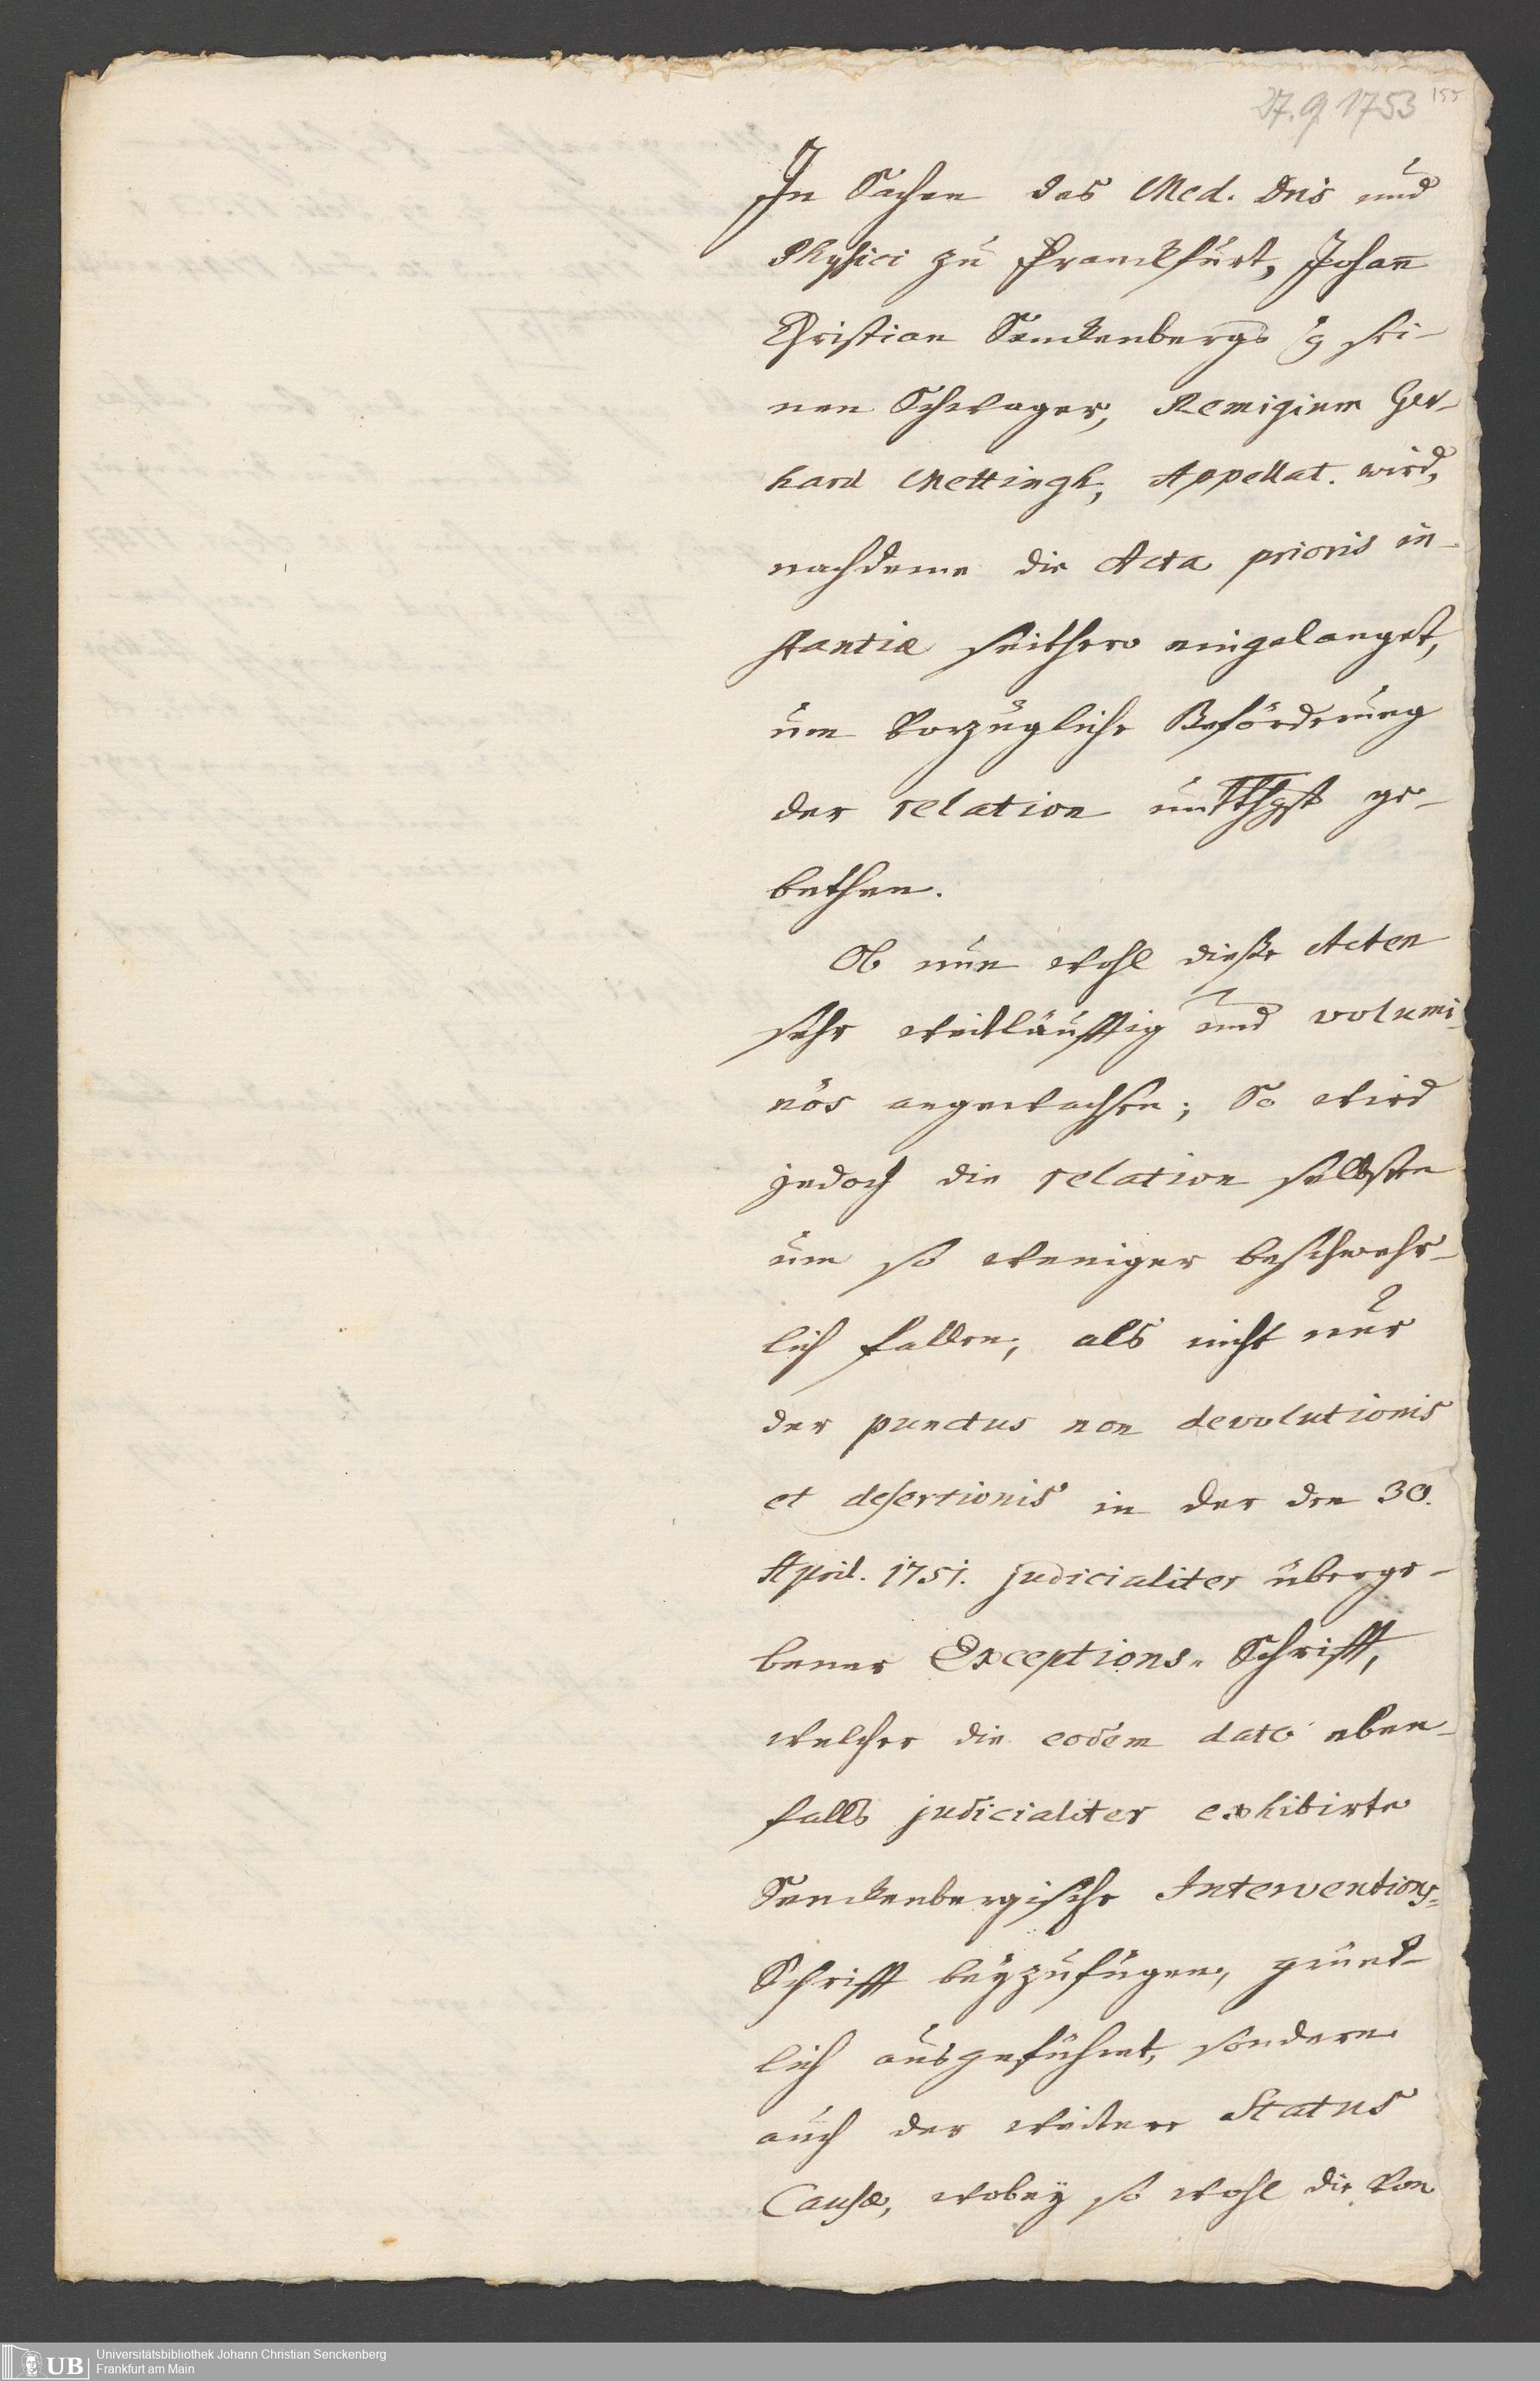 27.9 1753 155
In Sachen des Med. Dris und
Physici zu Franckfurt, Johann
Christian Senckenbergs g sei-
nen Schwager, Remigium Ger-
hard Mettingh, Appellat. wird,
nachdeme die Acta prioris in-
stantiæ seithero eingelanget,
um vorzügliche Beförderung
der relation unterthgst ge-
bethen.
Ob nun wohl dieße Acten
sehr weitläufftig und volumi-
nös angewachsen; So wird
jedoch die relation selbsten
um so weniger beschwehr-
lich fallen, als nicht nur
der punctus non devolutionis
et desertionis in der den 30.
April. 1751. judicialiter überge-
bener Exceptions-Schrifft,
welcher die eodem dato eben-
falls judicialiter exhibirte
Senckenbergische Interventions-
Schrifft beyzufügen, gründ-
lich ausgeführet, sondern
auch der weitere Status
Causæ, wobey so wohl die von
UB Universitätsbibliothek Johann Christian Senckenberg
Frankfurt am Main